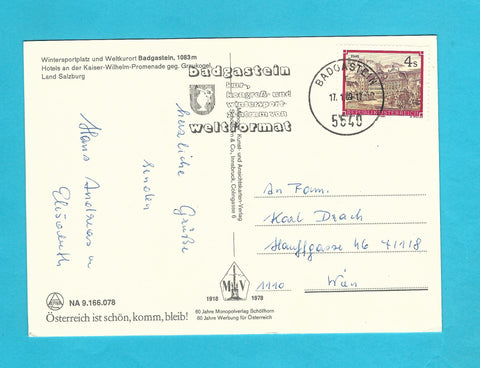 Wintersportplatz und Weltkurort Badgastein, 1083 m
Hotels an der Kaiser-Wilhelm-Promenade geg. Graukogel,
Land Salzburg
badgastein
kur-,
kongreß- und
wintersport-
zentrum von
weltformat
4 S
REPUBLIK ÖSTERREICH
BADGASTEIN
17.
5640
herzliche Grüße
senden
Hans Andreas u
Elisabeth
Kunst- und Ansichtskarten-Verlag
& Co., Innsbruck, Colingasse 6
An Fam.
Karl Drach
Hauffgasse 46
1110 Wien
M V
1918 1978
60 Jahre Monopolverlag Schöllhorn
60 Jahre Werbung für Österreich
NA 9.166.078
Österreich ist schön, komm, bleib!